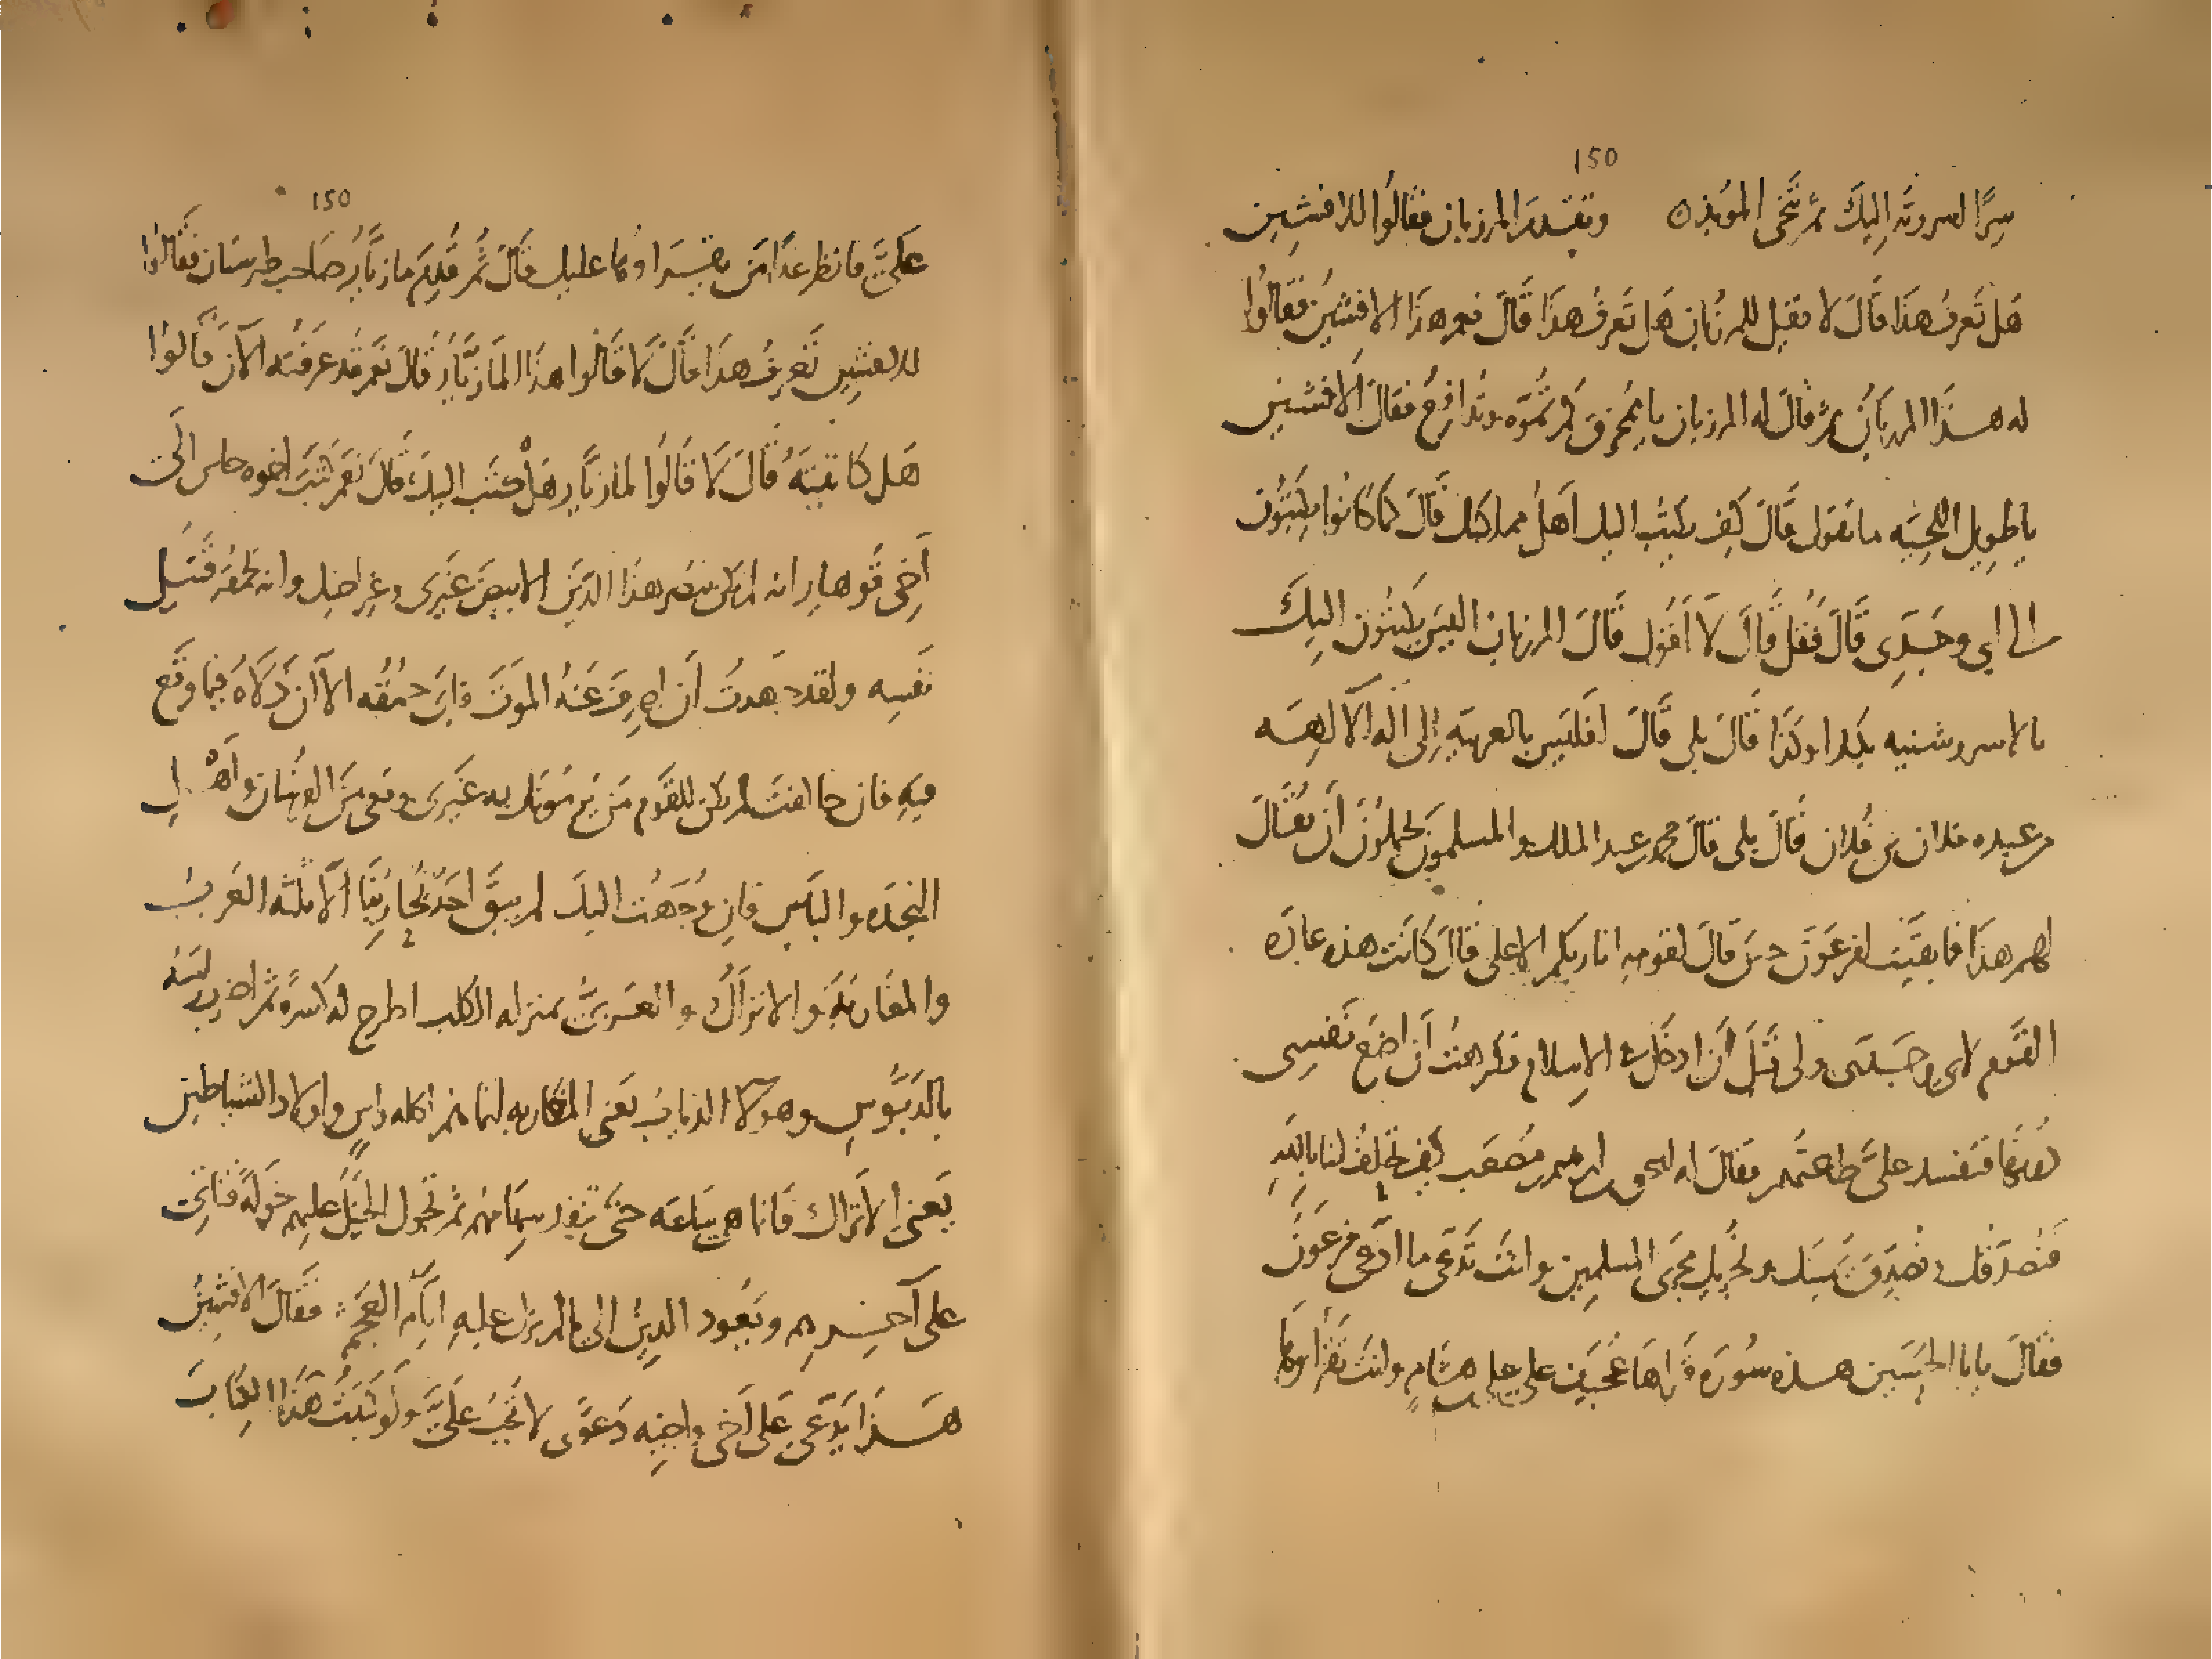 150
سِرًّا اسررته اليكَ ثم تنحّى الموبذ ه وتقدم المرزبان فقالوا للافشين
هَل تَعرفُ هذا قَالَ لا فقيل للمرزبان هل تعرفُ هذا قَالَ نعم هذا الافشين فقالوا
له هذا المرزبانُ ثم قالَ له المرزبان يا ممخرق كم تموّه وتدافعُ فقال الافشين
يا طويل اللحيَه ما تقول قَالَ كيف يكتب اليك اهلُ مملكتك قَالَ كما كانوا يكتبون
الى ابي وجَدّى قَالَ فقُل قَالَ لا اقول قَالَ المرزبان اليسَ يكتُبون اليكَ
بالاسروشنيه بكذا وكذا قَالَ بلى قَالَ افليس بالعربيةِ إلى اله الالهه
من عبده فلان بن فلان قَالَ بلى قَالَ محمد بن عبد الملك والمسلمون يحتملونَ أن يقالَ
لهم هذا فما بقيت لفرعَونَ حينَ قالَ لقومهِ انا ربكم الاعلى قالَ كانت هذه عادَه
القوم لابى وجَدّى ولى قبلَ أن ادخُلَ في الاسلام فكرهتُ أن اضعَ نَفسِى
دُونَها فتفسد علىَّ طاعتُهم فقالَ له اسحق بن ابراهيم بن مُصْعَب كيف تحلِفُ لنا باللهِ
فنصدقك ونُصَدِّق يَمينك ونُجريك مجرى المسلمين وانتَ تَدّعى ما ادّعى فِرعَونُ
فقالَ يا با الحسَين هذه سورة قرأها عُجَيف على على بن هشام وانتَ تقرأوها
150
عَلىَّ فانظر غدًا مَن يقرَأوها عليك قَالَ ثُمَّ قُدِّمَ مازيَّارُ صَاحب طبرستان فقَالُوا
للافشين تَعرِفُ هذا قَالَ لا قَالُوا هذا المازيَّارُ قالَ نَعم قد عَرَفتُه الآن قالوا
هَل كاتبتَهُ قالَ لا قَالُوا لمازيَّار هَلْ كتبَ اليكَ قالَ نعَم كتَبَ اخوه خاش الى
أخى قوهيار انه لم يكن ينصر هذا الدينَ الابيضَ غيرى وغيرك وانه بحمقه قتَل
نفسِه ولقد جَهدتُ أن اصرف عَنهُ الموتَ فابَى حُمْقُه الا ان دَلاهُ فيما وقَع
فيهِ فان خالفتَ لم يكن للقوم مَن يَرمونك به غيرى ومعى مِن الفرسَان واهل
النجدَه والبَاس فان وُجّهتُ اليكَ لم يبقَ احَدٌ يُحَاربُنا الا ثلثه العَربُ
والمغاربَهُ والاتراكُ والعَربىُّ بمنزله الكلب اطرح له كَسْرَةً ثم اضرب راسَهُ
بالدَبُّوسِ وهولآ الذباب يعنى المغَاربه انما هم اكله راسٍ واولاد الشياطين
يَعنى الاتراك فانما هى سَاعَه حتى تنفد سِهَامُهم ثُم تجول الخيلُ عليهم جَولةً فتاتى
على آخِرِهِم ويَعُود الدينُ الى ما لم يزل عليهِ ايّام العَجم فقَالَ الافشينُ
هَذا يَدّعى عَلى أخى واخيهِ دَعوَى لا تجبُ عَلىَّ ولَو كَتَبتُ هَذا الكِتَابَ